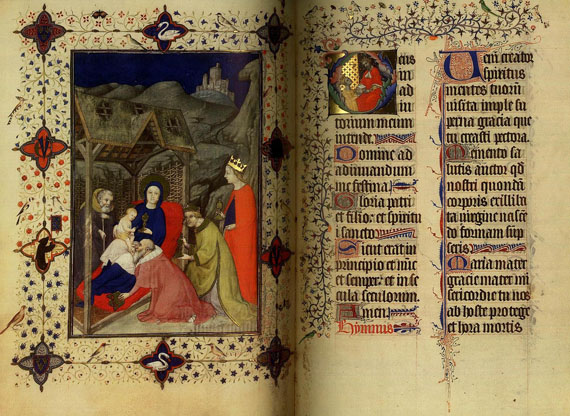 Deus
in
ad
iu
torium meum
intende.
Domine ad
adiuuandum
me festina.
Gloria patri
et filio: et spiritu
i sancto
Sicut erat in
principio et nūc
et semper: et in se
cula seculorum.
Amen.
Hymnus
Ueni creator
spiritus
mentes tuorū
uisita imple su
perna gracia que
tu creasti pectora.
Memento sa
lutis auctor qd
nostri quondā
corporis ex illiba
ta uirgine nascē
do formam sup
seris
Maria mater
gracie mater mi
sericordie tu nos
ab hoste protege
et hora mortis